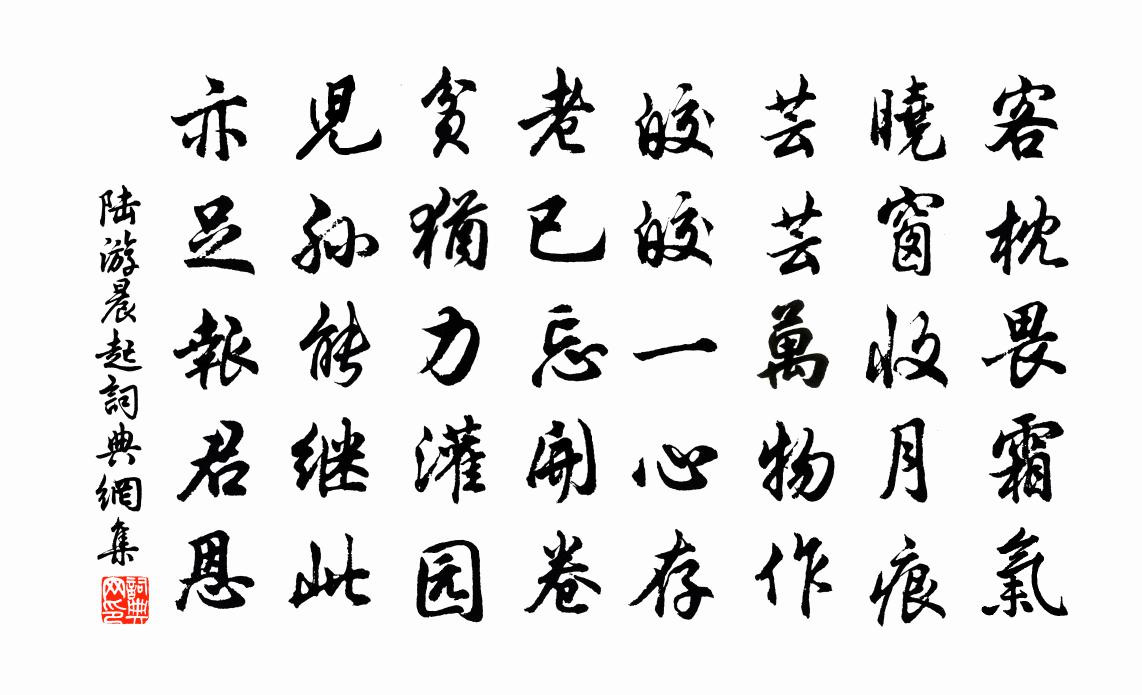 客枕畏霜氣
曉窗收月痕
芸芸萬物作
皎皎一心存
老已忘開卷
貧猶力灌园
児孙能继此
亦足報君恩
陆游晨起詞典網集
詞典网印